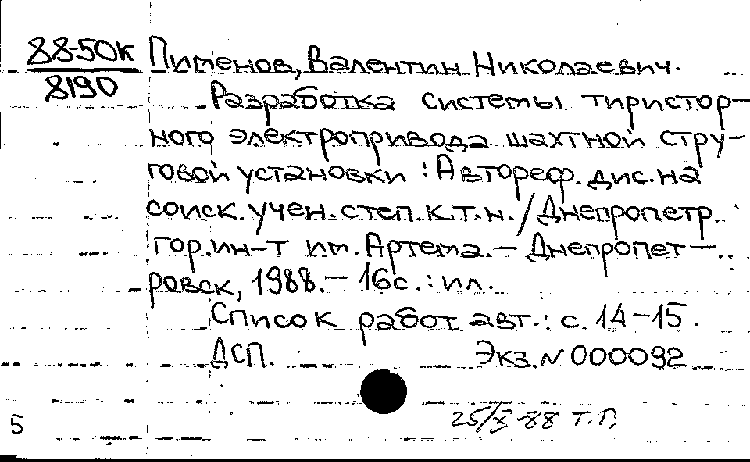 88-50к Пименов, Валентин Николаевич.
8190
Разработка системы тиристор-
ного электропривода шахтной стру-
говой установки : Автореф. дис. на
соиск. учен. степ. к.т.н. / Днепропетр.
гор. ин-т им. Артема. — Днепропет-
ровск, 1988. — 16с. : ил.
Список работ авт.: с. 14-15.
ДСП. Экз. N 000092
25/X-88 Т.П.
5